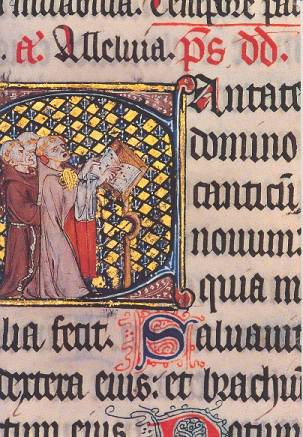 mirabilia. Tempore pas
a'. Alleluia. ps dd.
Cantate
domino
canticū
nouum:
quia m
lia fecit. Saluaui
dextera eius: et brachiū
ctum eius. Notum